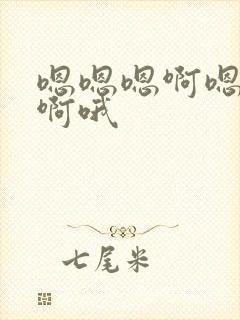 嗯嗯嗯啊嗯
啊哦
七尾米